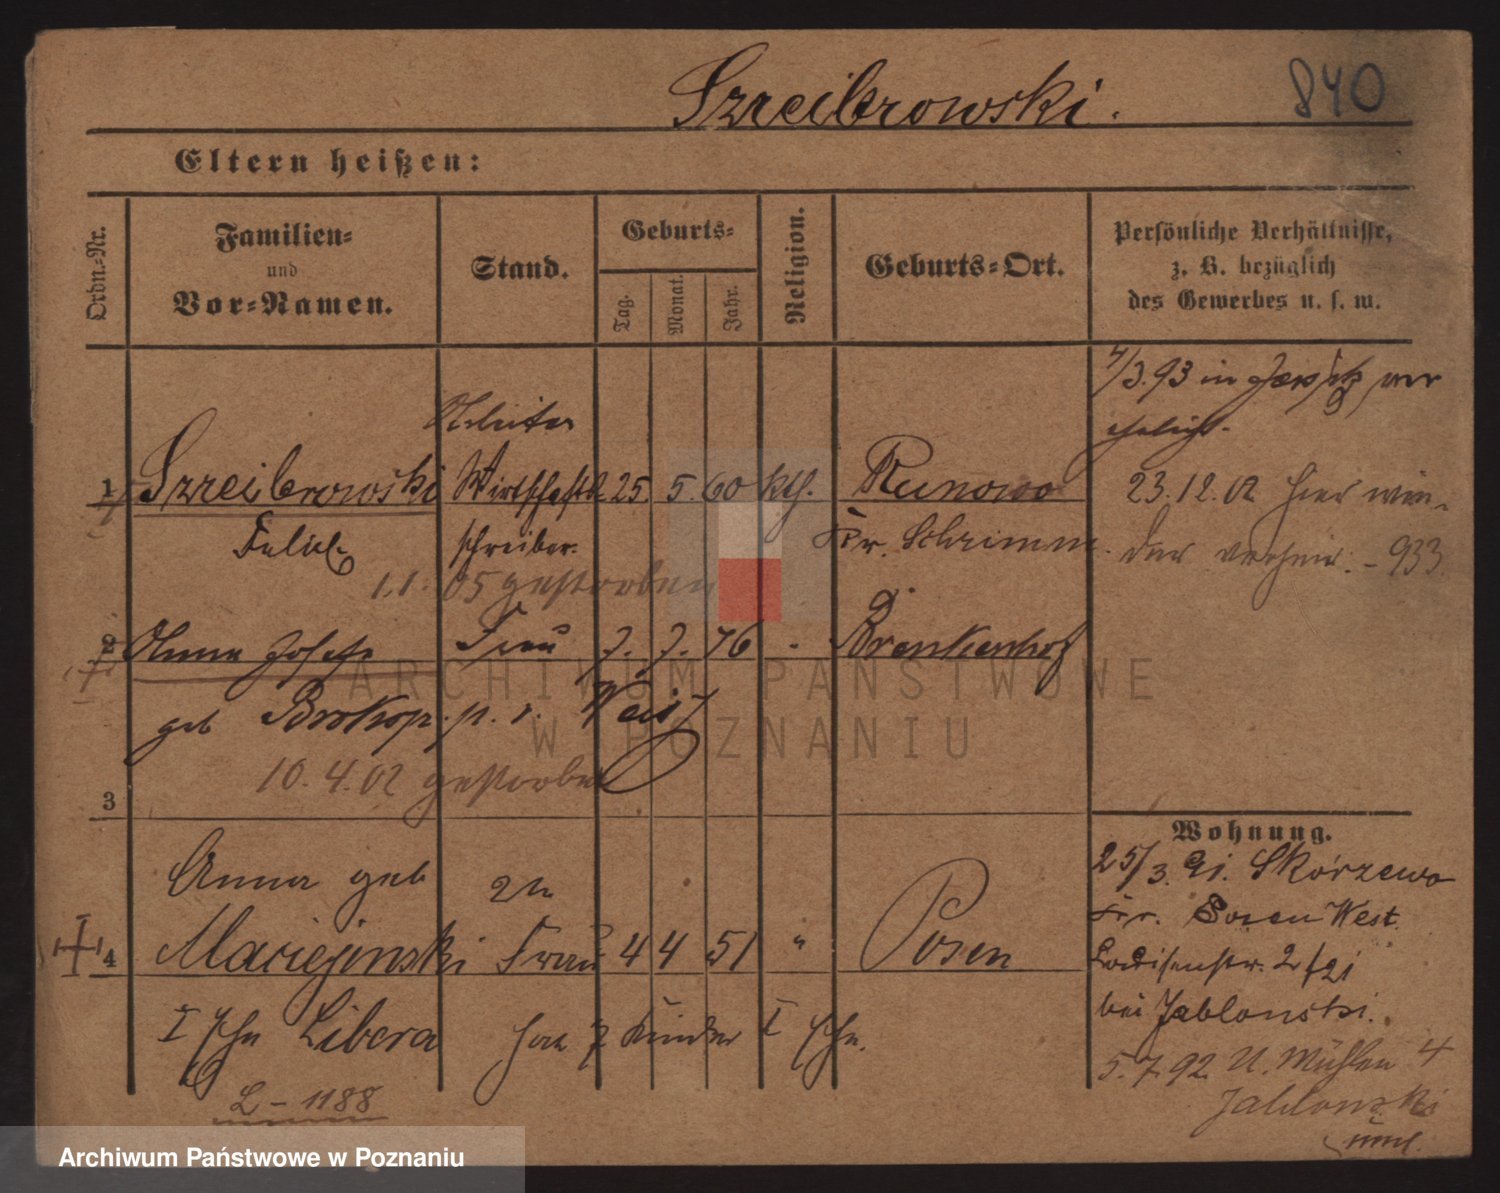 Szreibrowski.
840
Eltern heißen:
Ordn.-Nr.
Familien-
und
Vor-Namen.
Stand.
Geburts-
Tag.
Monat.
Jahr.
Religion.
Geburts-Ort.
Persönliche Verhältnisse,
z. B. bezüglich
des Gewerbes u. s. w.
4/3.93 in Jersitz ver
ehelicht.
Arbeiter
1 Szreibrowski Wirtschafts 25. 5. 60 kth. Runowo
23.12.02 hier wie-
Felix schreiber. Kr. Schrimm.
der verheir. - 933
1.1. 05 gestorben
2 Anna Josefa Frau 7. 7. 76 Brenkenhof
geb Prokop.
10.4.02 gestorben
3
Wohnung.
Anna geb 2te
25/3. 91. Skórzewo
Kr. Posen West.
4 Maciejewski Frau 4 4 51 " Posen
Louisenstr. 2
bei Jablonski.
I Ehe Libera hat 7 Kinder I Ehe.
5.7.92 U. Mühlen 4
Jablonski
L - 1188
ARCHIWUM PAŃSTWOWE
W POZNANIU
Archiwum Państwowe w Poznaniu